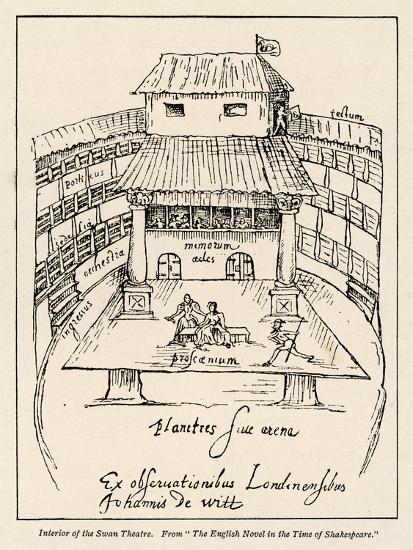 tectum
porticus
sedilia
orchestra
mimorum
ædes
ingressus
proscænium
planities siue arena
Ex obseruationibus Londinensibus
Johannis De Witt
Interior of the Swan Theatre. From "The English Novel in the Time of Shakespeare."